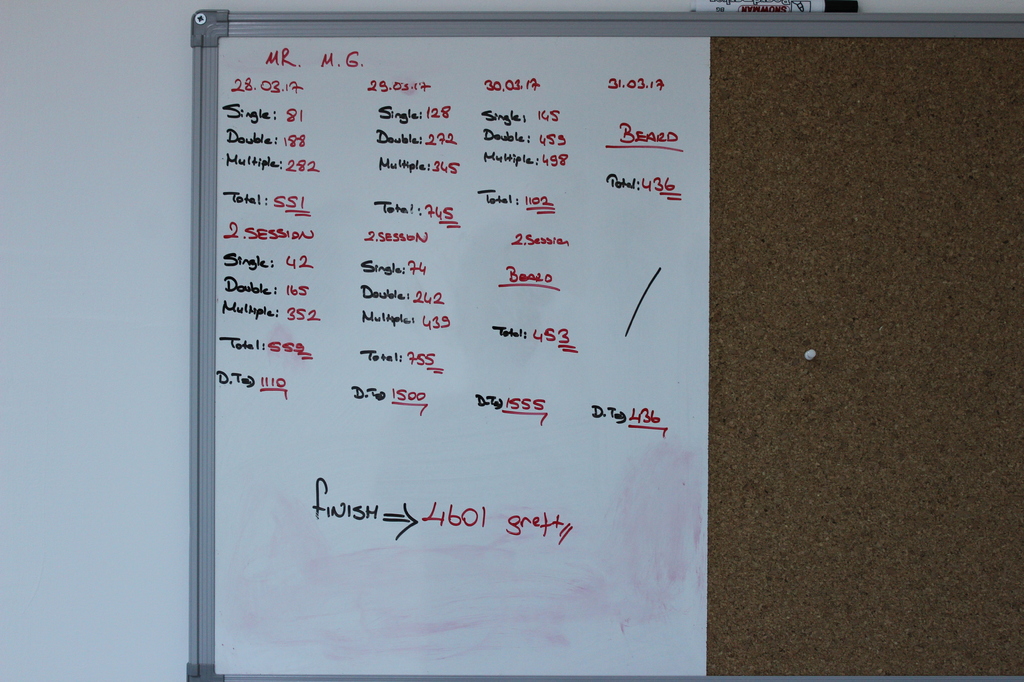 SNOWMAN
MR. M.G.
28.03.17
Single: 81
Double: 188
Multiple: 282
Total: 551
2.SESSION
Single: 42
Double: 165
Multiple: 352
Total: 559
D.T⇒ 1110
29.03.17
Single: 128
Double: 272
Multiple: 345
Total: 745
2.SESSION
Single: 74
Double: 242
Multiple: 439
Total: 755
D.T⇒ 1500
30.03.17
Single: 145
Double: 459
Multiple: 498
Total: 1102
2.Session
BEARD
Total: 453
D.T⇒ 1555
31.03.17
BEARD
Total: 436
/
D.T⇒ 436
FINISH ⇒ 4601 greft